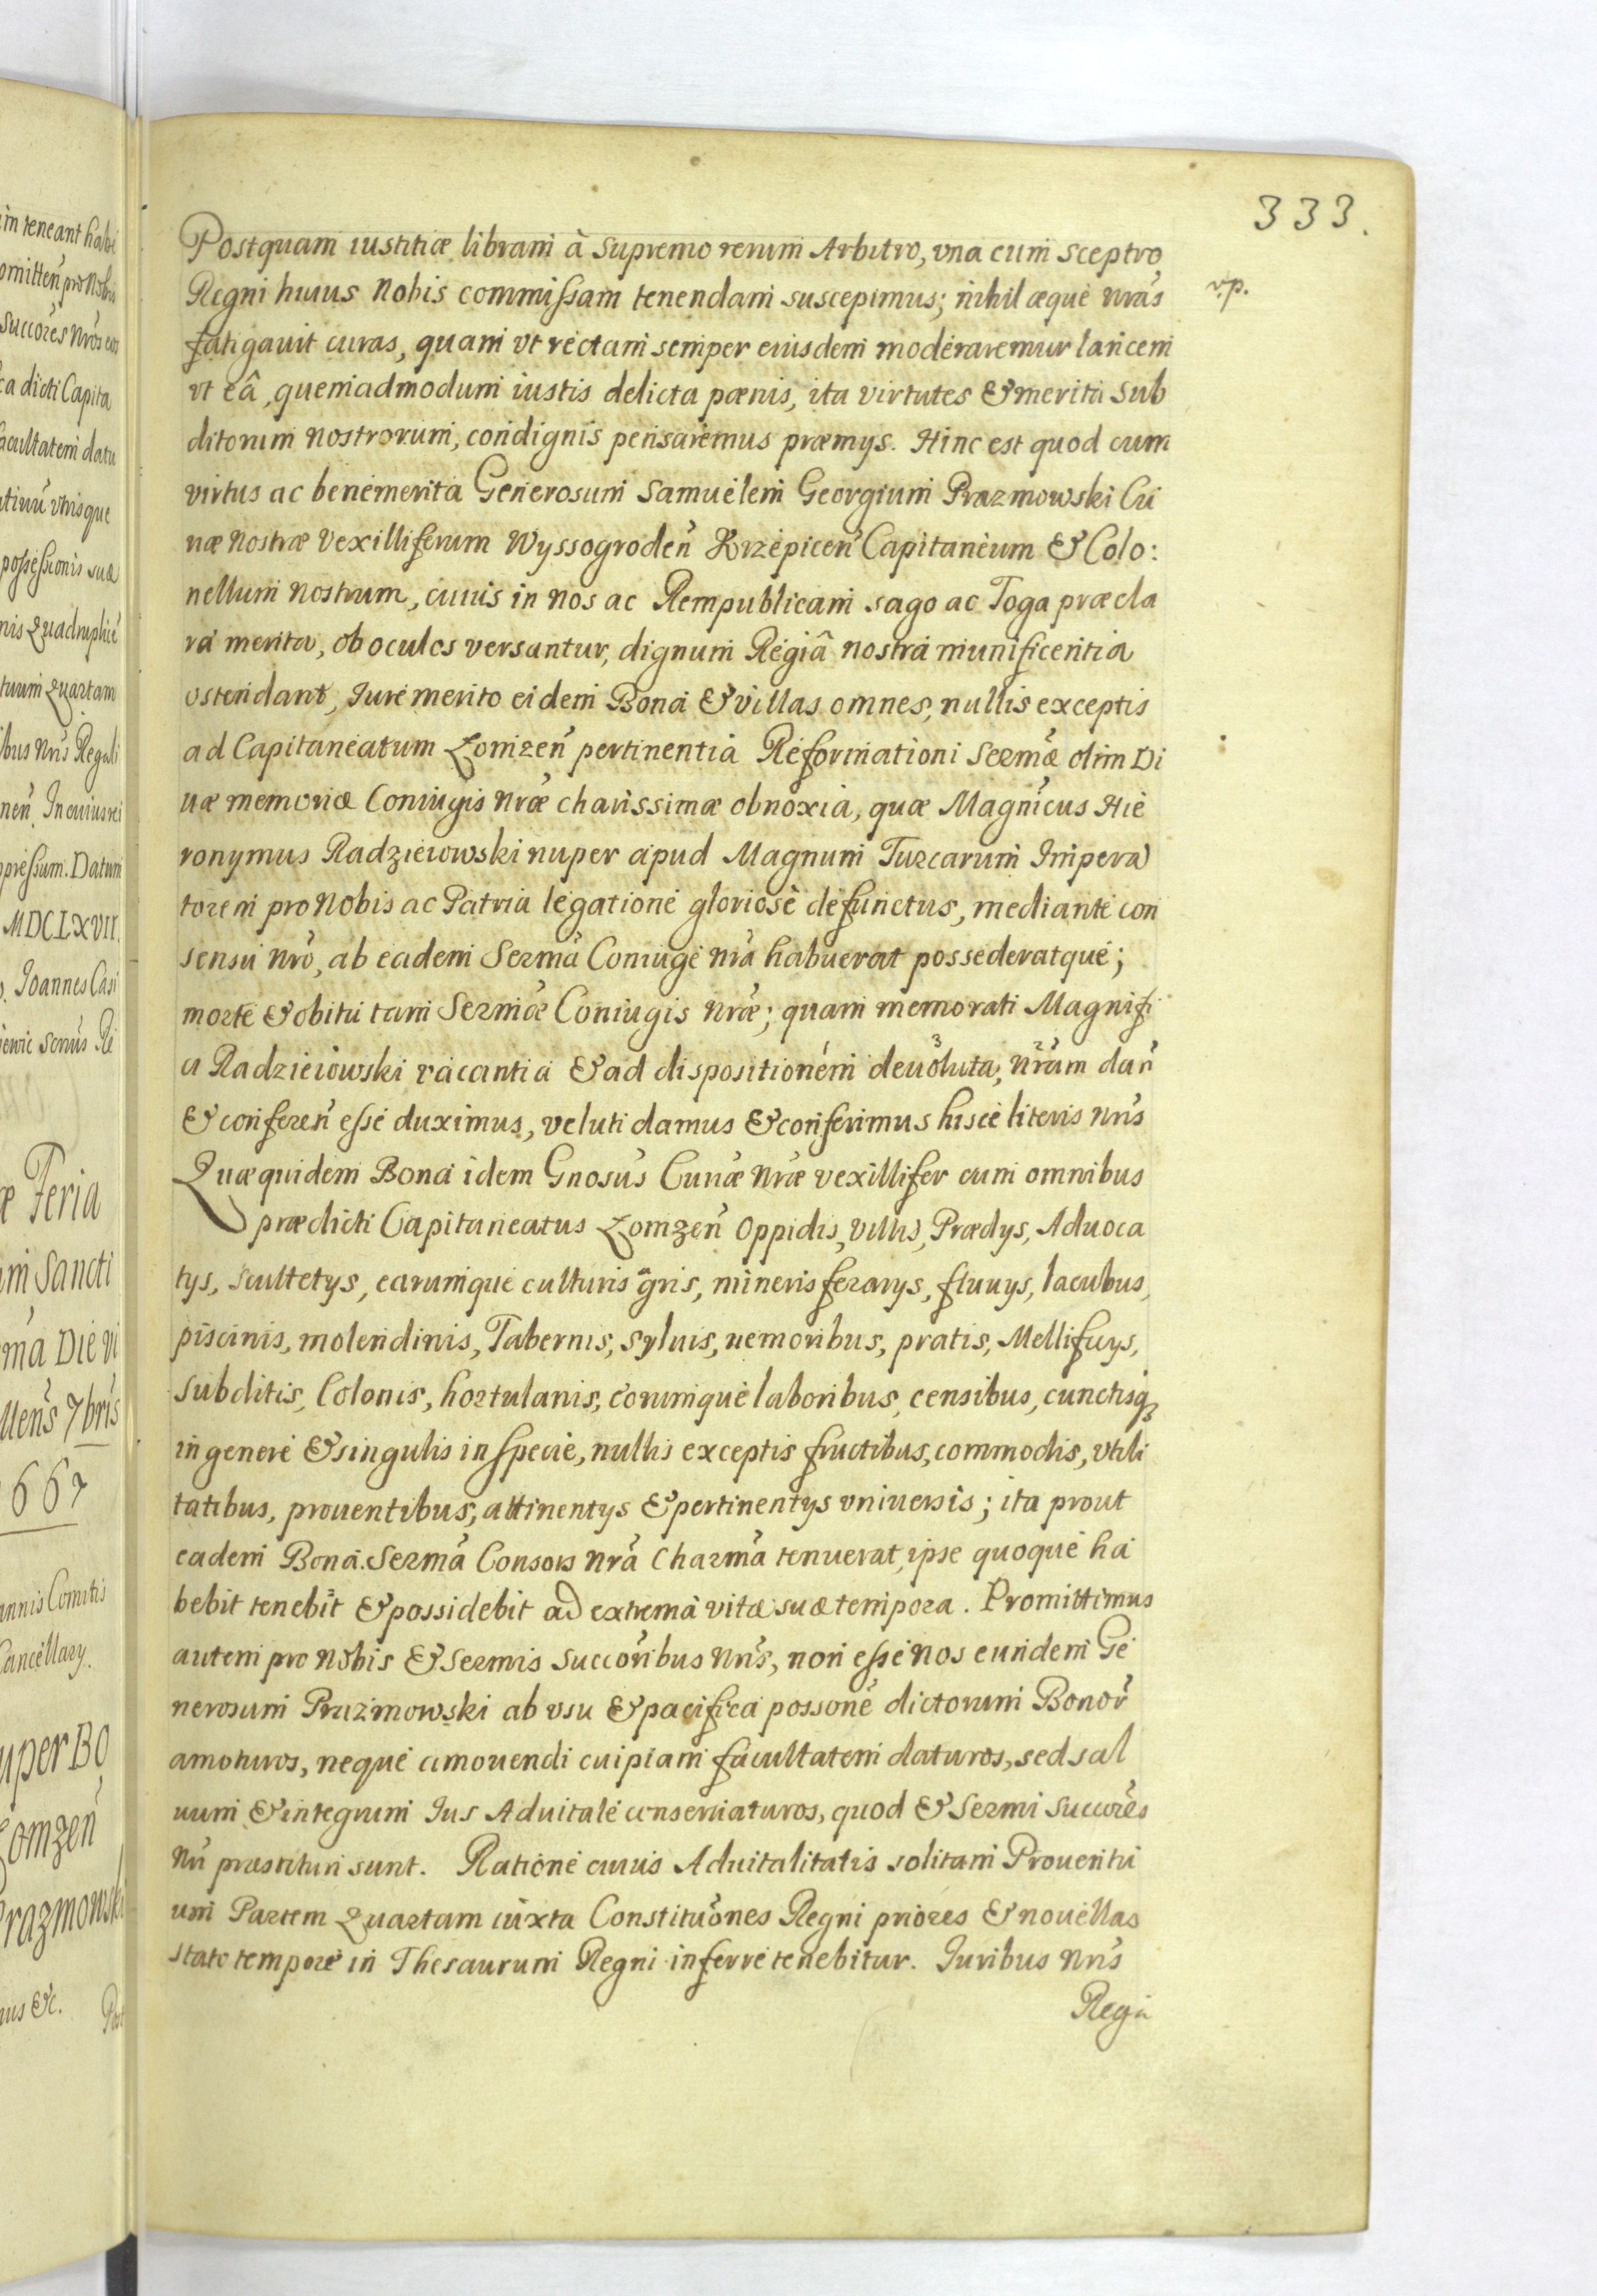 333.
Postquam iustitiæ libram à Supremo rerum Arbitro, vna cum Sceptro
Regni huius Nobis commissam tenendam suscepimus; nihil æque nr̃as
v.p.
fatigauit curas, quam vt rectam semper eiusdem moderaremur lancem
vt eâ, quemadmodum iustis delicta pœnis, ita virtutes & merita Sub
ditorum nostrorum, condignis pensaremus præmys. Hinc est quod cum
virtus ac benemerita Generosum Samuelem Georgium Prazmowski Cu
riæ Nostræ Vexilliferum Wyssogroden̄ Krzepicen̄ Capitaneum & Colo:
nellum Nostrum, cuius in nos ac Rempublicam sago ac Toga præcla
ra merita, ob oculos versantur, dignum Regiâ nostra munificentia
ostendant, Jure merito eidem Bona & villas omnes, nullis exceptis
ad Capitaneatum Lomzen̄ pertinentia Reformationi Serm̃æ olim Di
uæ memoriæ Coniugis Nr̃æ charissimæ obnoxia, quæ Magnicus Hie
ronymus Radzieiowski nuper apud Magnum Turcarum Impera
torem pro Nobis ac Patria legatione gloriose defunctus, mediante con
sensu Nr̃o, ab eadem Serm̃a Coniuge nr̃a habuerat possederatque;
morte & obitu tam Serm̃æ Coniugis Nr̃æ; quam memorati Magnifi
ci Radzieiowski vacantia & ad dispositionem deuoluta, nr̃am dan̄
& conferen̄ esse duximus, veluti damus & conferimus hisce literis Nr̃is
Quæ quidem Bona idem Gnosus Curiæ Nr̃æ vexillifer cum omnibus
prædicti Capitaneatus Lomzen̄ Oppidis, Villis, Prædys, Aduoca
tys, Scultetys, earumque culturis agris, mineris ferarys, fluuys, lacubus,
piscinis, molendinis, Tabernis, Syluis, nemoribus, pratis, Mellificys,
Subditis, Colonis, hortulanis, eorumque laboribus, censibus, cunctisq;
in genere & singulis in specie, nullis exceptis fructibus, commodis, vtili
tatibus, prouentibus, attinentys & pertinentys vniuersis; ita prout
eadem Bona Serm̃a Consors nr̃a Charm̃a tenuerat, ipse quoque ha
bebit tenebit & possidebit ad extrema vitæ suæ tempora. Promittimus
autem pro Nobis & Sermis Succoribus Nr̃is, non esse Nos eundem Ge
nerosum Prazmowski ab vsu & pacifica possone dictorum Bonor̃
amoturos, neque amouendi cuipiam facultatem daturos, sed sal
uum & integrum Jus Aduitale conseruaturos, quod & Sermi Succores
Nr̃i præstituri sunt. Ratione cuius Aduitalitatis solitam Prouentu
um Partem Quartam iuxta Constituones Regni priores & nouellas
stato tempore in Thesaurum Regni inferre tenebitur. Juribus Nr̃is
Rega